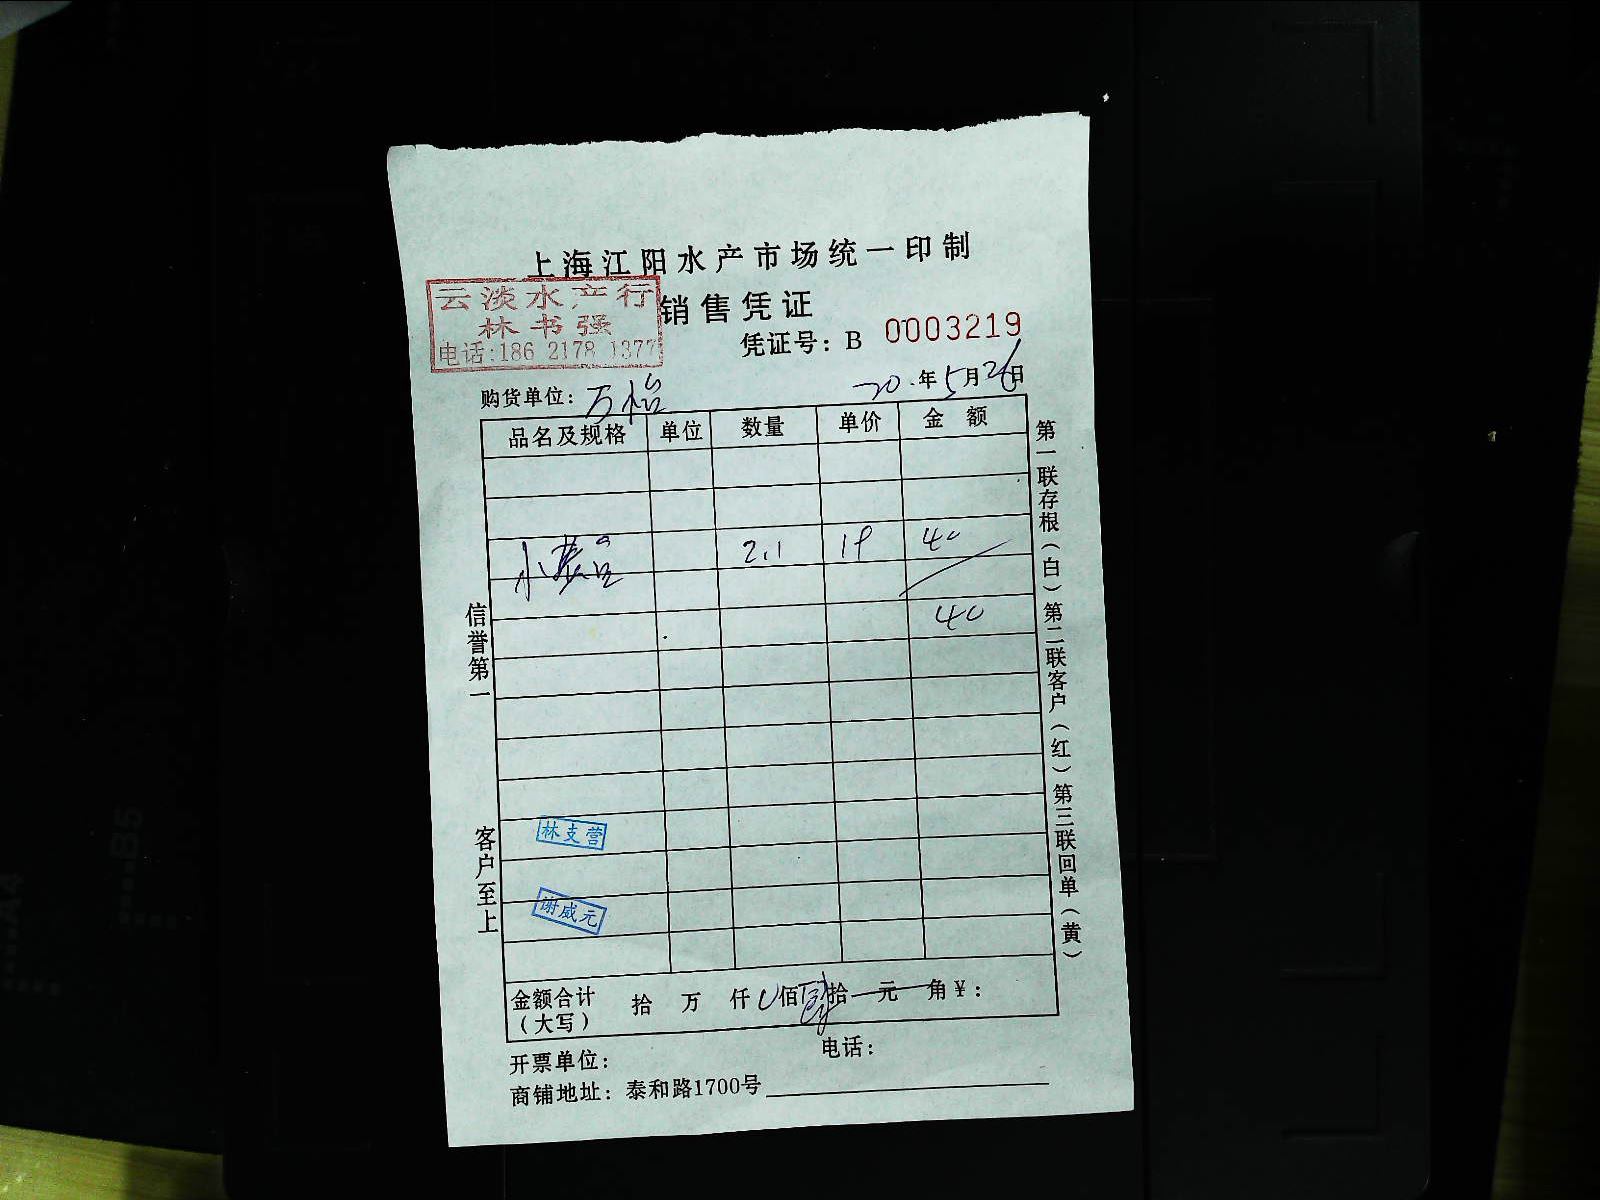 上海江阳水产市场统一印制
销售凭证
云淡水产行
林书强
电话:186 2178 1377
凭证号: B 0003219
购货单位: 万怡
20.年5月26日
品名及规格 单位 数量 单价 金额
小黄 2.1 19 40
40
信誉第一
客户至上
第一联存根(白)第二联客户(红)第三联回单(黄)
林支营
谢威元
金额合计(大写) 拾 万 仟 佰 肆拾 元 角¥:
开票单位: 电话:
商铺地址: 泰和路1700号